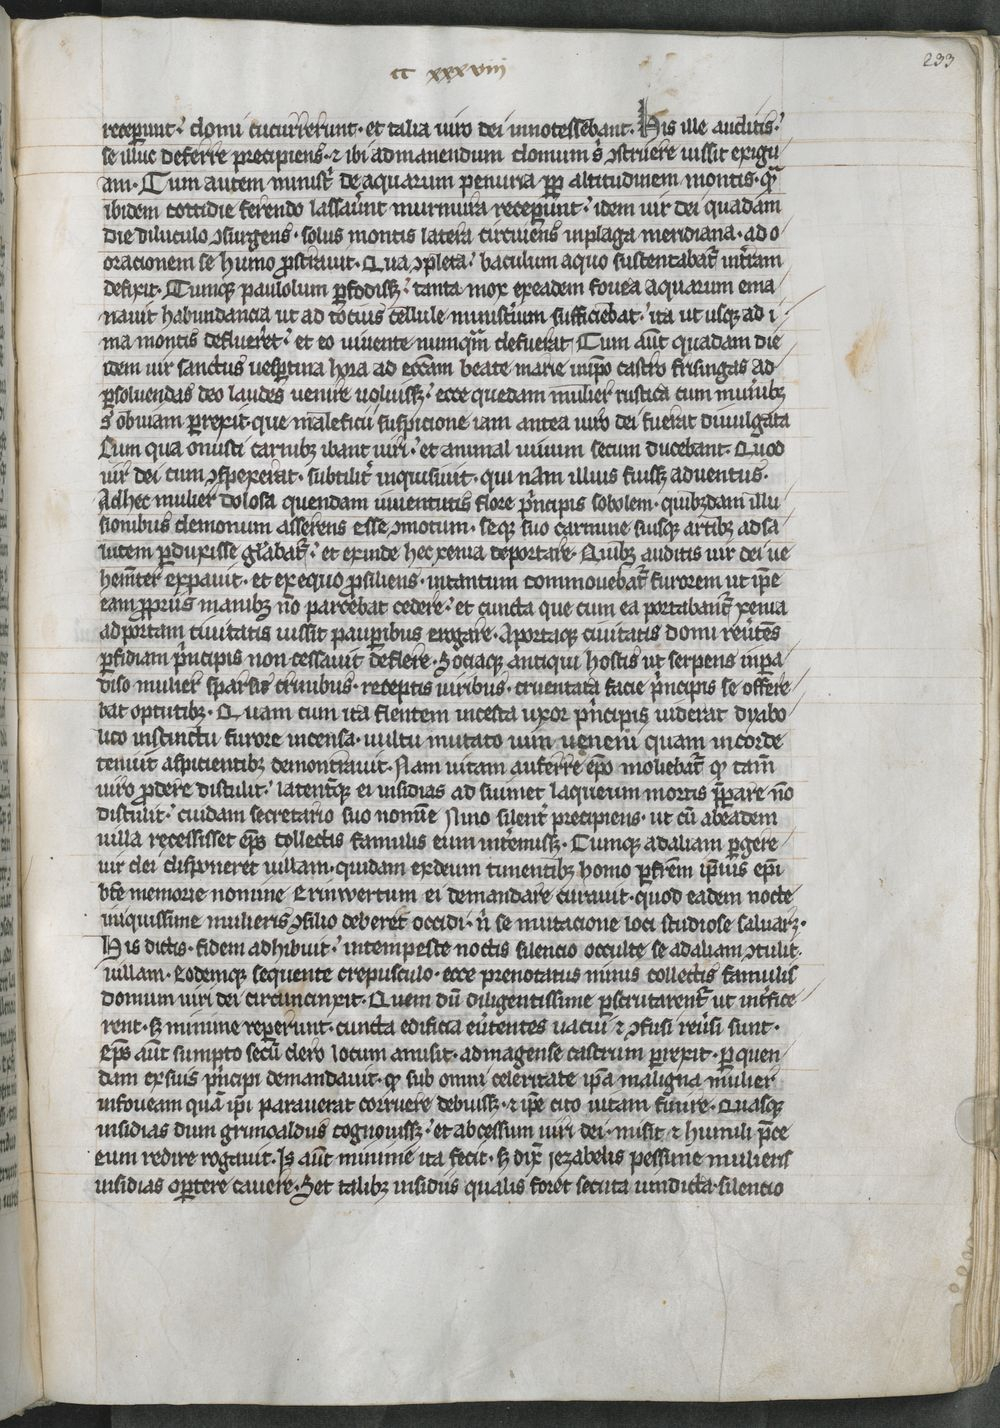 cc xxxviij
233
receperunt. domi cucurrerunt. et talia uiro dei innotessebant. His ille auditis.
se illuc deferre precipiens. ⁊ ibi admanendum domum s' ꝯstruere iussit exigu
am. Cum autem ministr̄ de aquarum penuria ꝓpt altitudinem montis. qm̄
ibidem cottidie ferendo lassauerunt murmura receperunt. idem uir dei quadam
die diluculo ꝯsurgens. solus montis latera circuiens inplaga meridiana. ad o
oracionem se humo ꝓstrauit. Qua ꝯpleta. baculum aquo sustentabat̄ int̄ram
defixit. Cumqꝫ paulolum ꝑfodissꝫ. tanta mox exeadem fouea aquarum ema
nauit habundancia ut ad tocius cellule ministerium sufficiebat. ita ut usqꝫ ad i
ma montis deflueret. et eo uiuente nunqm̄ defuerat Cum aūt quadam die
idem uir sanctus uesꝑtina hora ad ecc̄am beate marie inip̄o castro frisingas ad
ꝑsoluendas deo laudes uenire uoluissꝫ. ecce quedam mulier rustica cum munibꝫ
s' obuiam ꝑrexit. que maleficii suspicione iam antea uiro dei fuerat diuulgata
Cum qua onusti carnibꝫ ibant uiri. et animal uiuum secum ducebant. Quod
uir dei cum ꝯspexerat. subtilit̄ inquisiuit. qui nam illius fuissꝫ aduentus.
Adhec mulier dolosa quendam iuuentutis flore p'ncipis sobolem. quibꝫdam illu
sionibus demonum asserens esse ꝯmotum. seqꝫ suo carmine suisqꝫ artibꝫ adsa
lutem ꝑduxisse gl'abat̄. et exinde hec xenia deportare. Quibꝫ auditis uir dei ue
hemēter expauit. et ex equo ꝓsiliens. intantum commouebat̄ furorem ut ip̄e
eam ꝓpriis manibꝫ nō parcebat cedere. et cuncta que cum ea portabant̄ xenia
adportam ciuitatis iussit pauꝑibus erogare. Aportaqꝫ ciuitatis domi reu'tēs
ꝑfidiam p'ncipis non cessauit deflere. Sociaqꝫ antiqui hostis ut serpens inpa
diso mulier sparsis crinibus. receptis uiribus. cruentata facie p'ncipis se offere
bat optutibꝫ. Quam cum ita flentem incesta uxor p'ncipis uiderat dyabo
lico instinctu furore incensa. uultu mutato uim ueneni quam incorde
tenuit aspicientibꝫ demontrauit. Nam uitam auferre ep̄o moliebat̄ qd' tam̄
uiro ꝓdere distulit. latent̄qꝫ ei insidias ad siuimet laqueum mortis p̄parare nō
distulit. cuidam secretario suo nomine Nino silent̄ precipiens. ut cū abeadem
uilla recessisset ep̄s collectis famulis eum int̄emissꝫ. Cumqꝫ adaliam ꝑgere
uir dei disponeret uillam. quidam exdeum timentibꝫ homo ꝑ frēm ip̄ius ep̄i
bt̄e memorie nomine Erinwertum ei demandare curauit. quod eadem nocte
iniquissime mulieris ꝯsilio deberet occidi. n̄ se mutacione loci studiose saluarꝫ.
His dictis. fidem adhibuit. intempeste noctis silencio occulte se adaliam ꝯtulit.
uillam. Eodemqꝫ sequente crepusculo. ecce prenotatus ninus collectis famulis
domum uiri dei circuncinxit. Quem dū diligentissime ꝑscrutarent̄ ut int̄fice
rent. sꝫ minime reꝑerunt. cuncta edificia eu'tentes uacui ⁊ ꝯfusi reu'si sunt.
Ep̄s aūt sumpto secū clero locum amisit. admagense castrum ꝑrexit. ꝑ quen
dam ex suis p'ncipi demandauit. qd' sub omni celeritate ip̄a maligna mulier
infoueam quā ip̄i parauerat corruere debuissꝫ. ⁊ ip̄e cito uitam finire. Quasqꝫ
insidias dum grimoaldus cognouissꝫ. et abcessum uiri dei. misit ⁊ humili p̄ce
eum redire rogauit. Is aūt minime ita fecit. sꝫ dix̄ iezabelis pessime mulieris
insidias oꝑtere cauere. Set talibꝫ insidiis qualis foret secuta uindicta. silencio